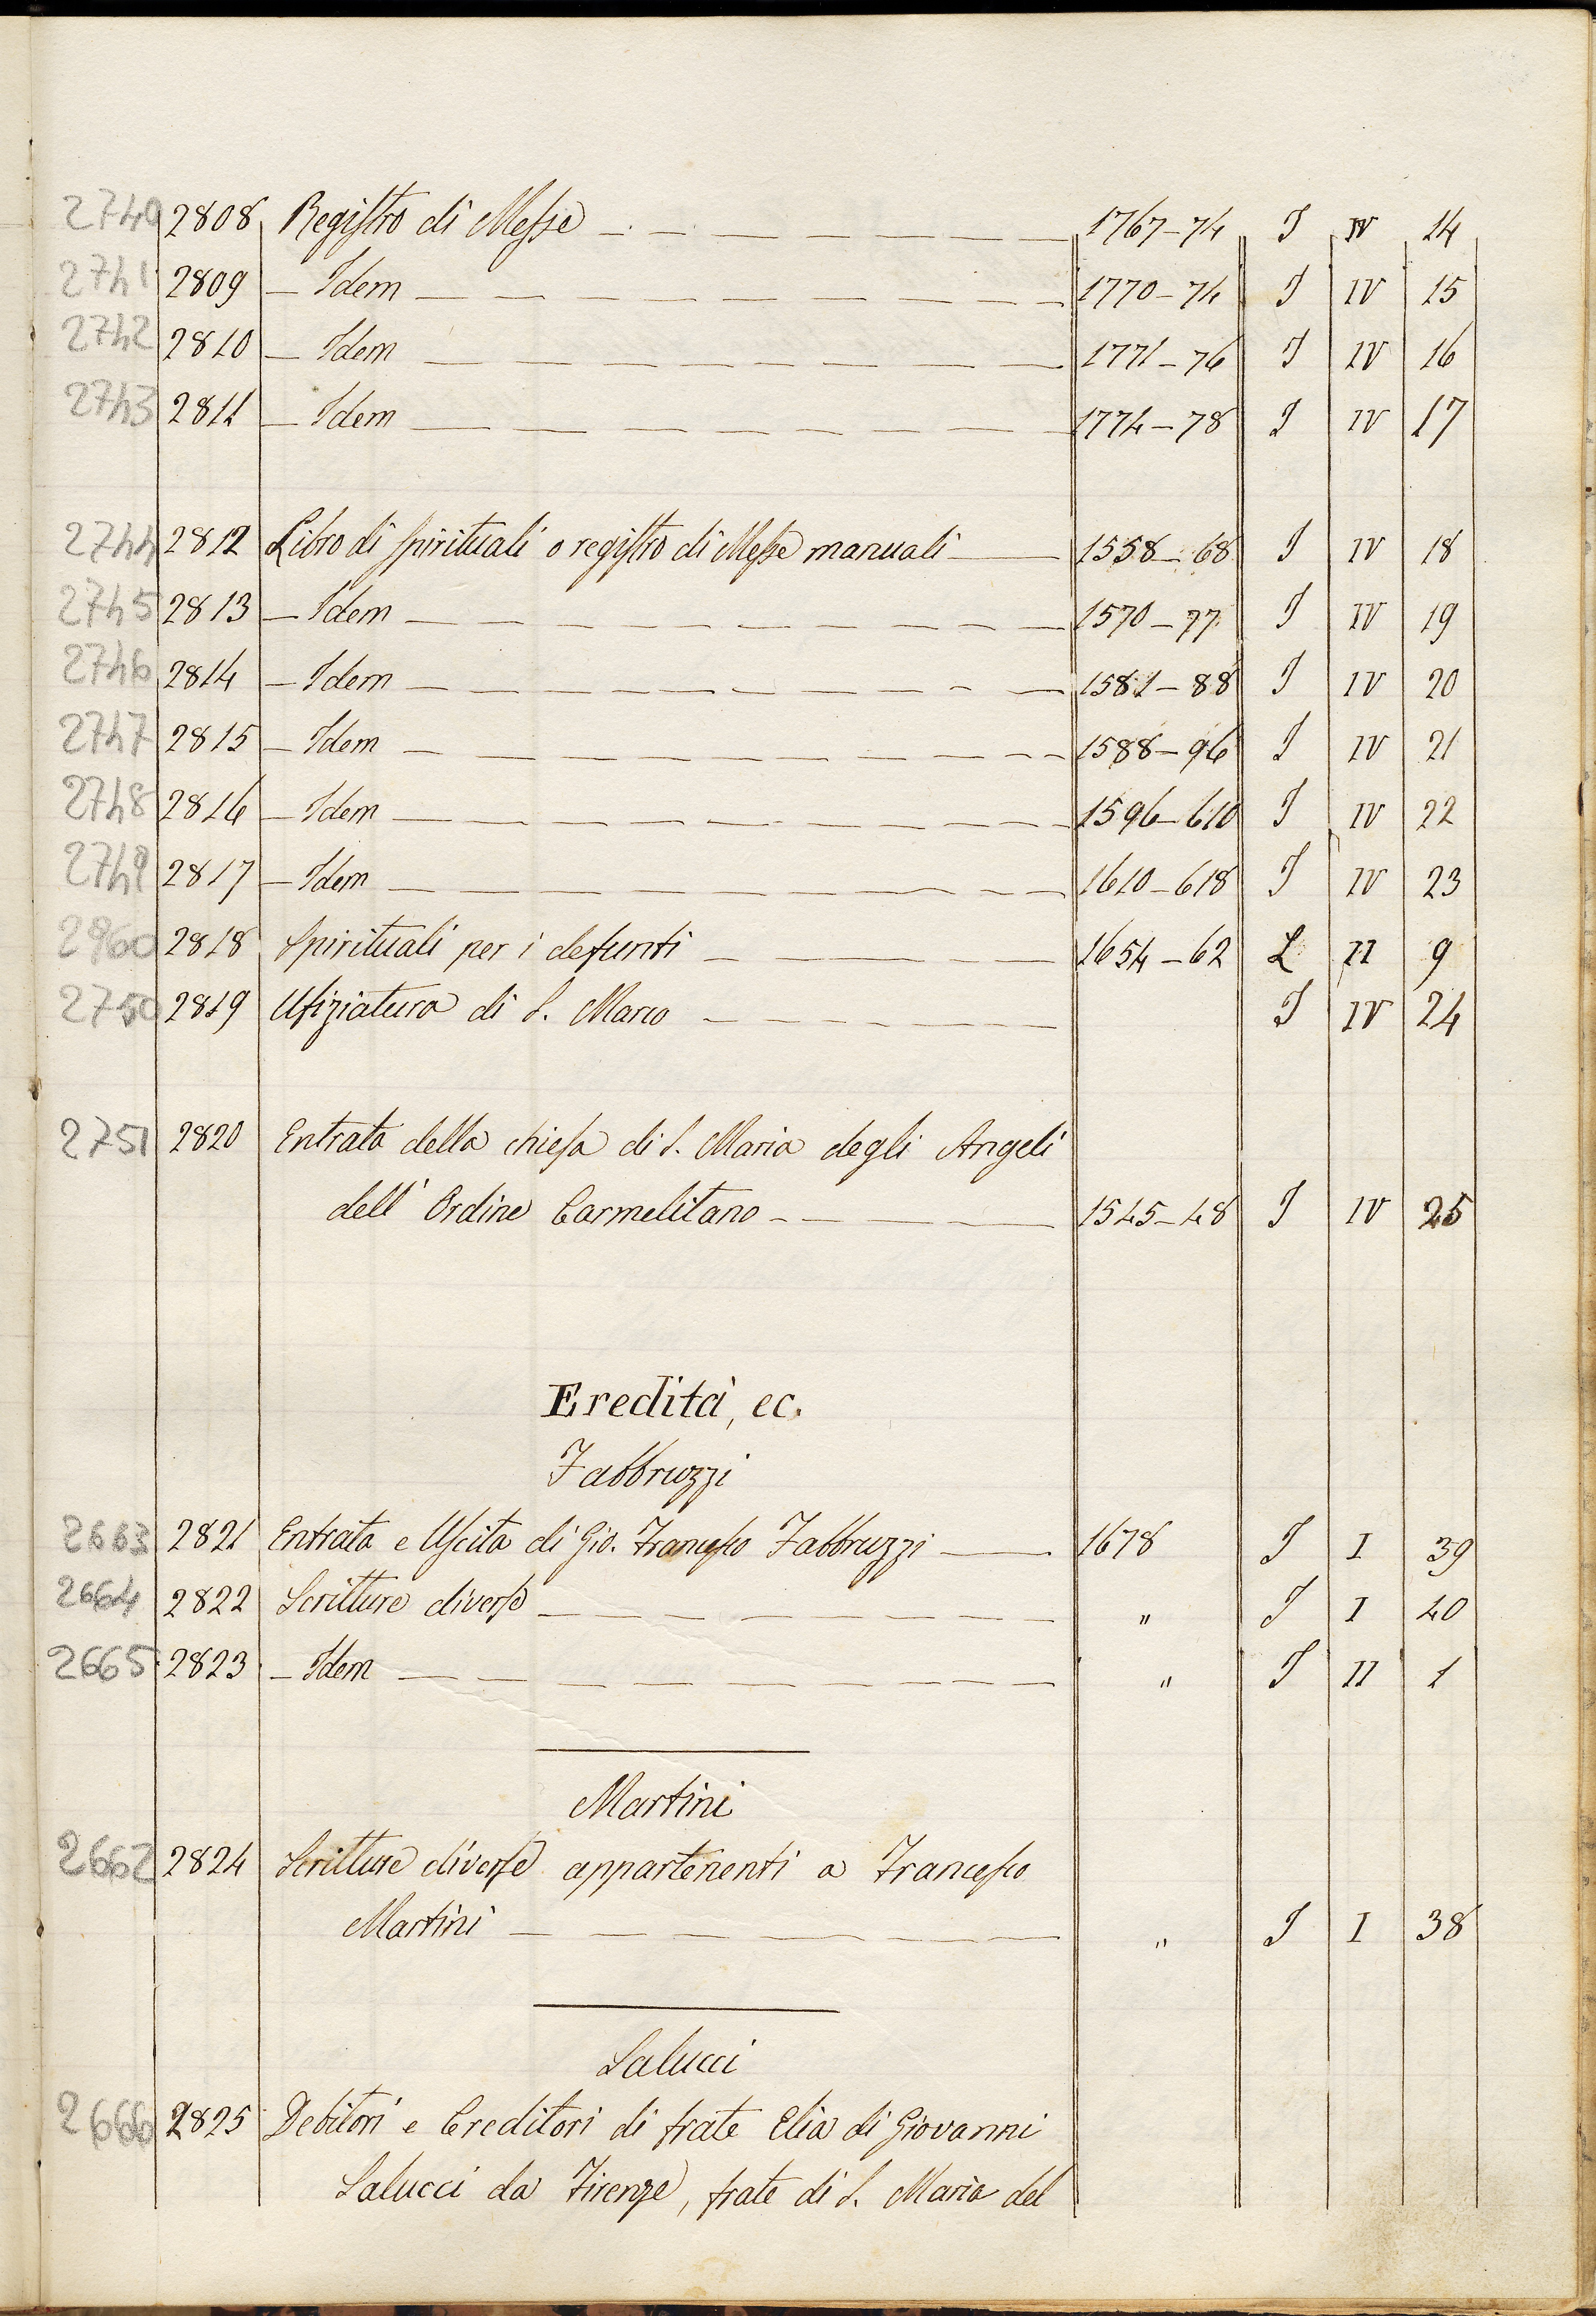 2740 2808 Registro di Messe 1767-74 I IV 14
2741 2809 — Idem 1770-74 I IV 15
2742 2810 — Idem 1771-76 I IV 16
2743 2811 — Idem 1774-78 I IV 17
2744 2812 Libro di spirituali o registro di Messe manuali 1558-68 I IV 18
2745 2813 — Idem 1570-77 I IV 19
2746 2814 — Idem 1581-88 I IV 20
2747 2815 — Idem 1588-96 I IV 21
2748 2816 — Idem 1596-610 I IV 22
2749 2817 — Idem 1610-618 I IV 23
2960 2818 Spirituali per i defunti 1654-62 L II 9
2750 2819 Ufiziatura di S. Marco I IV 24
2751 2820 Entrata della chiesa di S. Maria degli Angeli
dell' Ordine Carmelitano 1545-48 I IV 25
Eredità, ec.
Fabbruzzi
2663 2821 Entrata e Uscita di Gio. Francesco Fabbruzzi 1678 I I 39
2664 2822 Scritture diverse " I I 40
2665 2823 — Idem " I II 1
Martini
2662 2824 Scritture diverse appartenenti a Francesco
Martini " I I 38
Salucci
2666 2825 Debitori e Creditori di frate Elia di Giovanni
Salucci da Firenze, frate di S. Maria del